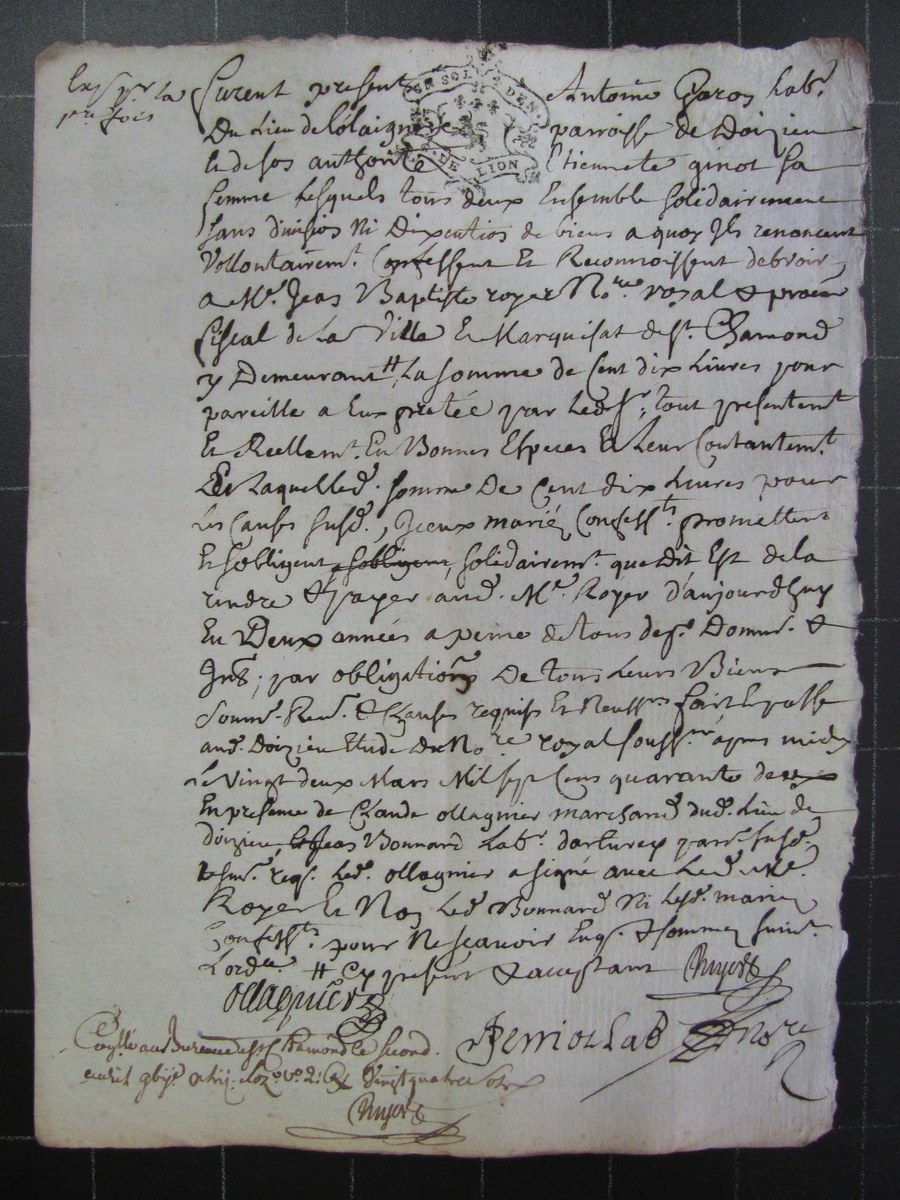 Furent present Antoine Baron Lab.r
GEN SOL. DEN.
DE LION
Du Lieu de parroisse de Doizieu
Et de son authorité Etiennete ginot sa
femme Lesquels tous deux Ensemble solidairement
sans division Ni Dixcution de biens a quoy Ils renoncent
Vollontairem.t Confessent Et Reconnoissent debvoir
a M.e Jean Baptiste royer No.re royal & procur
fiscal de La Ville Et Marquisat de S.t Chamond
y Demeurant # La somme de Cent dix Livres pour
pareille a Eux pretée par Led. S.r, tout presentem.t
Et Reellem.t En Bonnes Especes Et Leur Contantem.t
Laquelled. somme De Cent dix Livres pour
Les Causes susd., Iceux mariés Confess.ts promettent
Et sobligent sobligent solidairem.t que dit Est de la
rendre & payer aud. M.e Royer d'aujourdhuy
En Deux années a peine de tous desp. Domm. &
Int.s, par obligation De tous Leurs Biens
Soum. Ren. & Clauses requises Et Necess.res fait Et passé
aud. Doizieu Etude Du No.re royal souss.né apres midy
Le Vingt deux Mars Mil sept Cens quarante deux
En presence de Claude ollagnier marchand dud. Lieu de
doizieu, Et Jean Bonnard Lab.r parr. susd.
 req. Led. ollagnier a signé avec Led. M.e
Royer Et Non Led. Bonnard Ni Lesd. mariés
Confess.ts pour Ne scavoir Enq. & sommés suiv.t
Lord.ce # Cy present & acceptant Royer
ollagnier
Perriolat No.re
 au Bureau de S.t Chamond le second
avril Vingt quatre sols
Royer